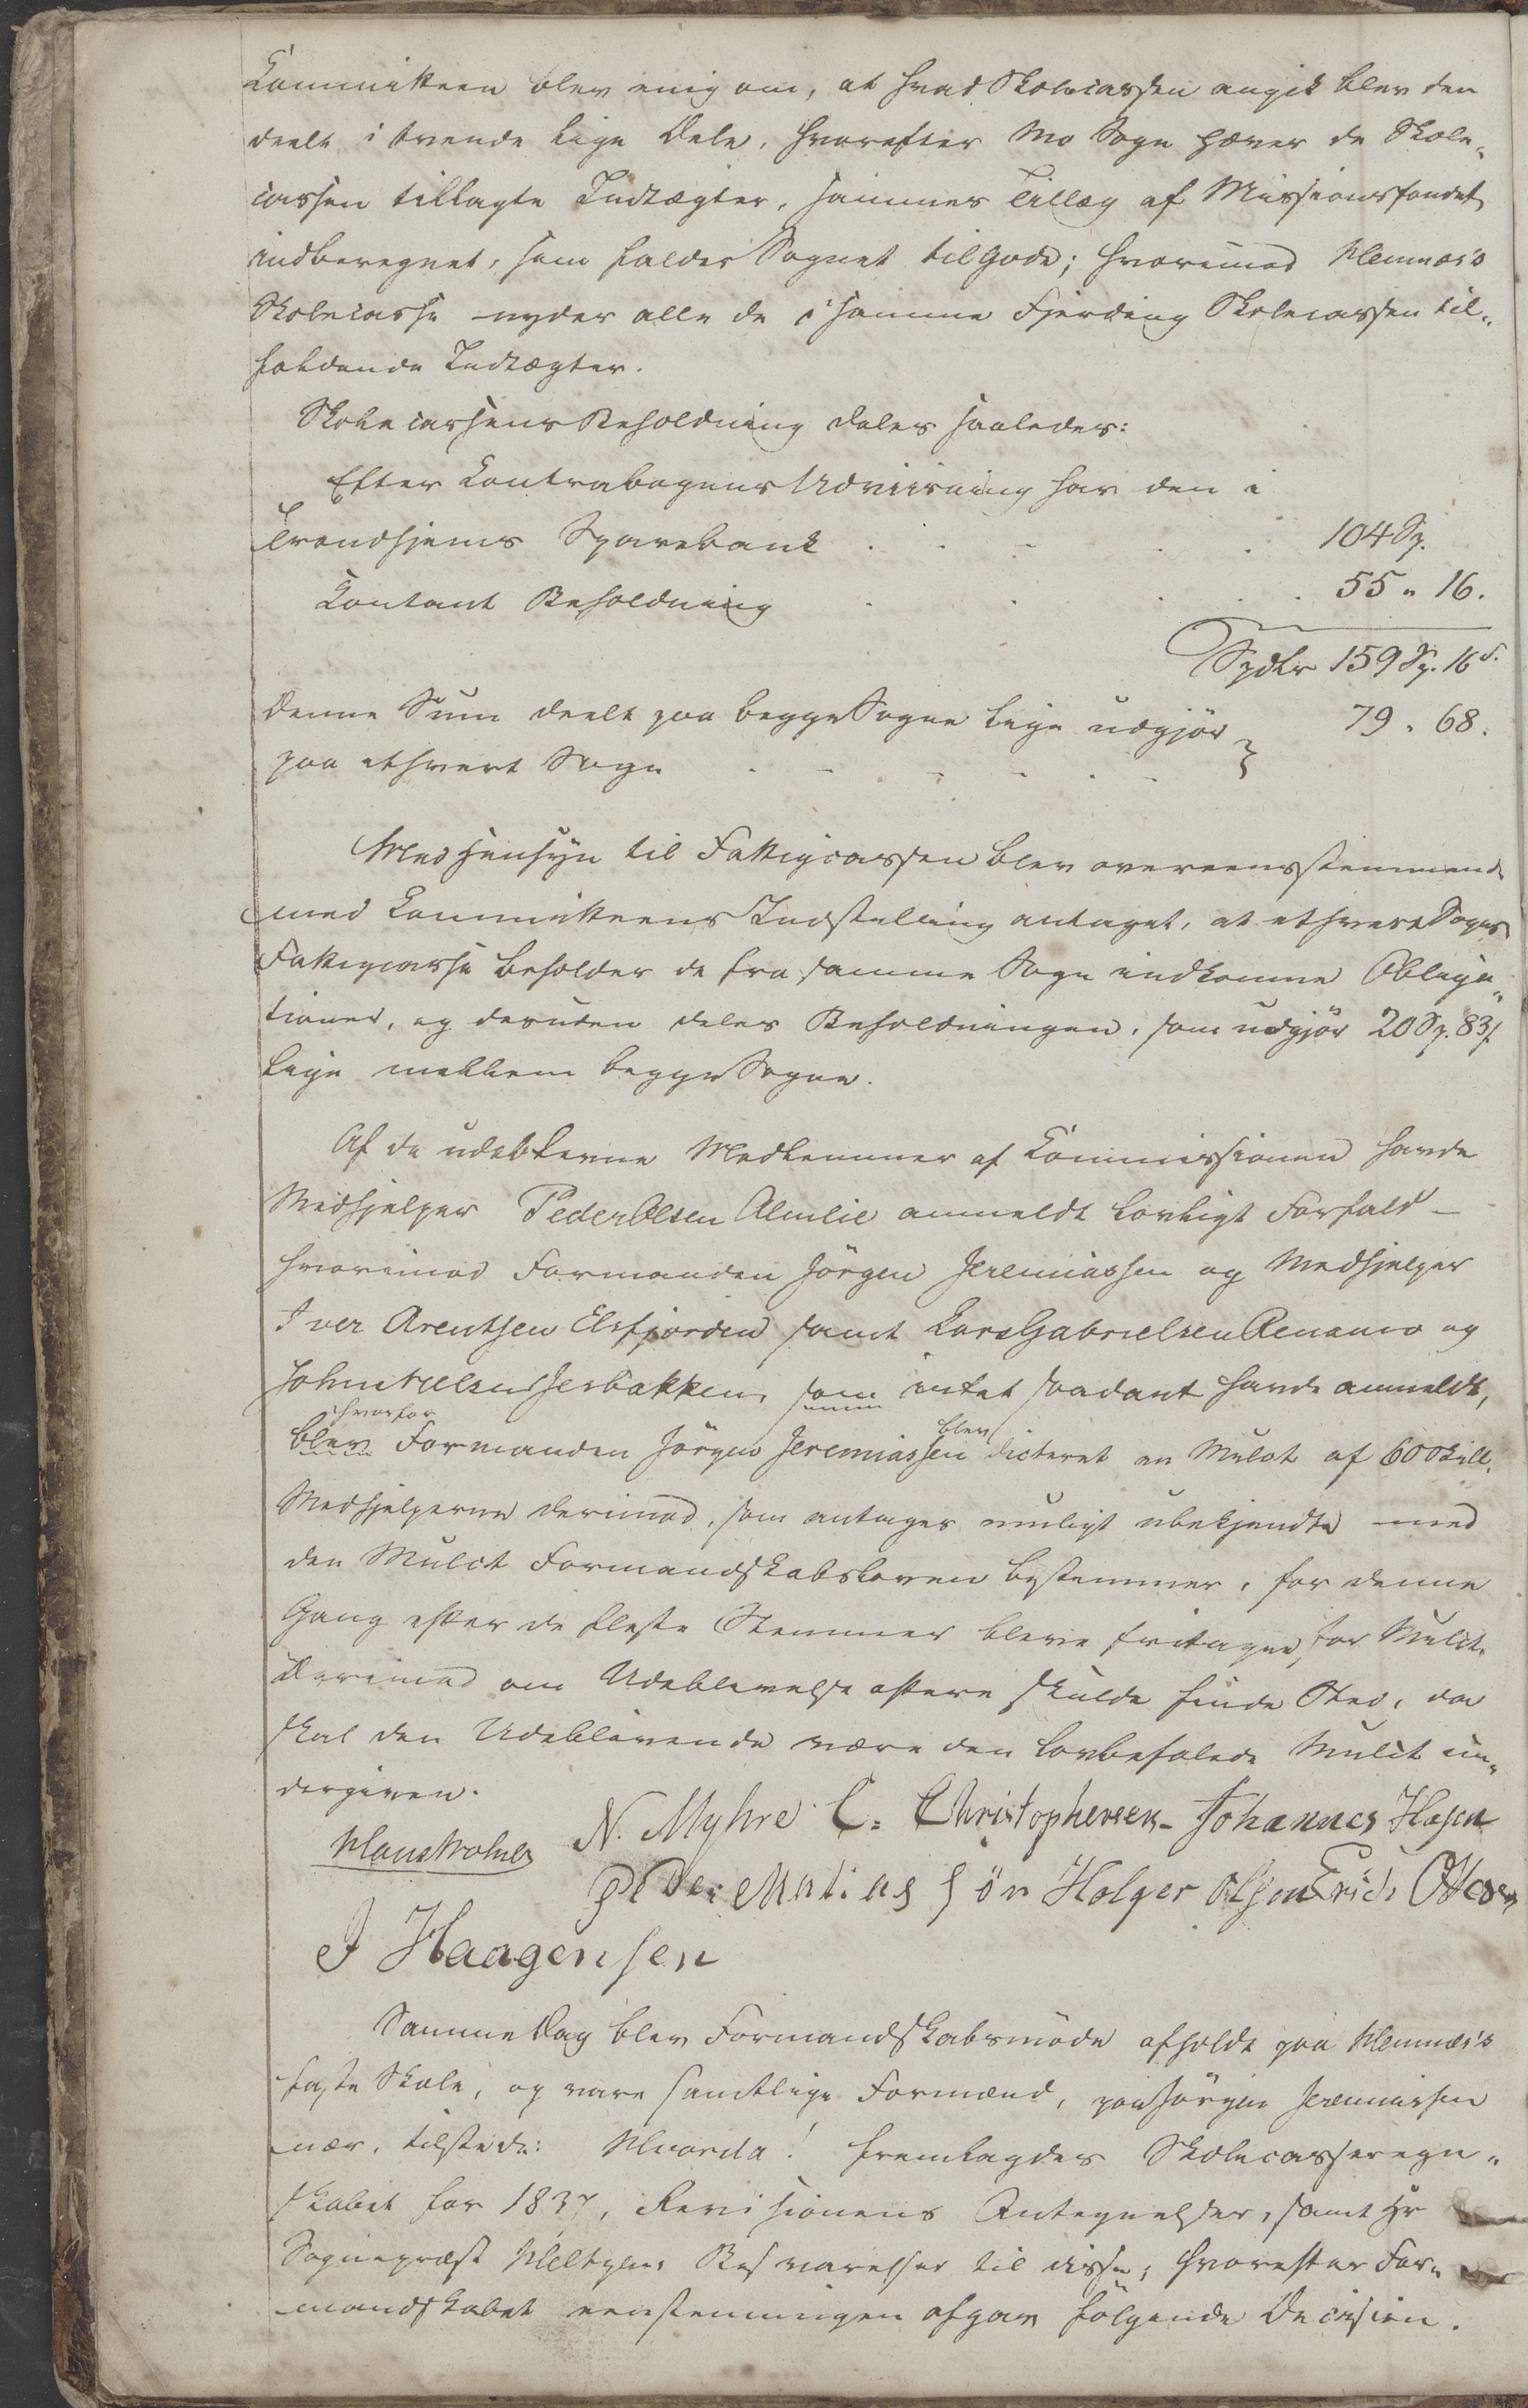 Committeen blev enig om, at hvad Skolecassen angik blev den
deelt i tvende lige Dele, hvorefter Mo Sogn hæver de Skole„
cassen tillagte Indtægter, sammes Tillæg af Missionsfondet
indberegnet, som falder Sognet tilgode; hvorimod Hemnæs's
Skolecasse nyder alle de i samme Fjerding Skolecassen til„
faldende Indtægter.
Skolecassens Beholdning deles saaledes:
Efter Contrabogens Udviisning har den i
Trondhjems Sparebank . . . . . 104 Sp.
Contant Beholdning . . . . . 55 „ 16.
Spdlr 159 Sp. 16 s.
Denne Sum deelt paa begge Sogne lige udgjør } 79 „ 68.
paa ethvert Sogn . . . . . .
Med Hensyn til Fattigcassen blev overeensstemmende
med Committeens Indstilling antaget, at ethvert Sogns
Fattigcasse beholder de fra samme Sogn indkomne Obliga„
tioner, og desuden deles Beholdningen, som udgjør 20 Sp. 83 s.
lige mellem begge Sogne.
Af de udeblevne Medlemmer af Commissionen havde
Medhjelper Peder Olsen Almlie anmeldt lovligt Forfald –
hvorimod Formanden Jörgen Jeremiassen og Medhjelper
Iver Arentsen Elsfjorden samt Lars Gabrielsen Ranamo og
John Nielsen Jerbakken, som intet saadant havde anmeldt,
hvorfor blev
blev Formanden Jörgen Jeremiassen dicteret en Mulct af 60 Skill.
Medhjelperne derimod, som antages muligt ubekjendte med
den Mulct Formandskabsloven bestemmer, for denne
Gang efter de fleste Stemmer bleve fritagne for Mulct.
Derimod om Udeblivelse oftere skulde finde Sted, da
skal den Udeblivende være den lovbefalede Mulct un„
dergiven.
N. Myhre C. Christophersen Johannes Hagen
Peder Matias sön Holger Olsen Erich Ottesen
J Haagensen
Samme Dag blev Formandskabsmöde afholdt paa Hemnæs's
faste Skole, og vare samtlige Formænd, paa Jörgen Jeremiassen
nær, tilstede: Hvorda! fremlagdes Skolecasseregn„
skabet for 1837, Revisionens Antegnelser, samt Hr
Sognepræst Heltzens Besvarelser til disse; hvorefter For„
mandskabet eenstemmigen afgav fölgende Decision.